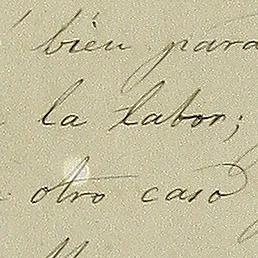 bien para
la labor;
otro caso